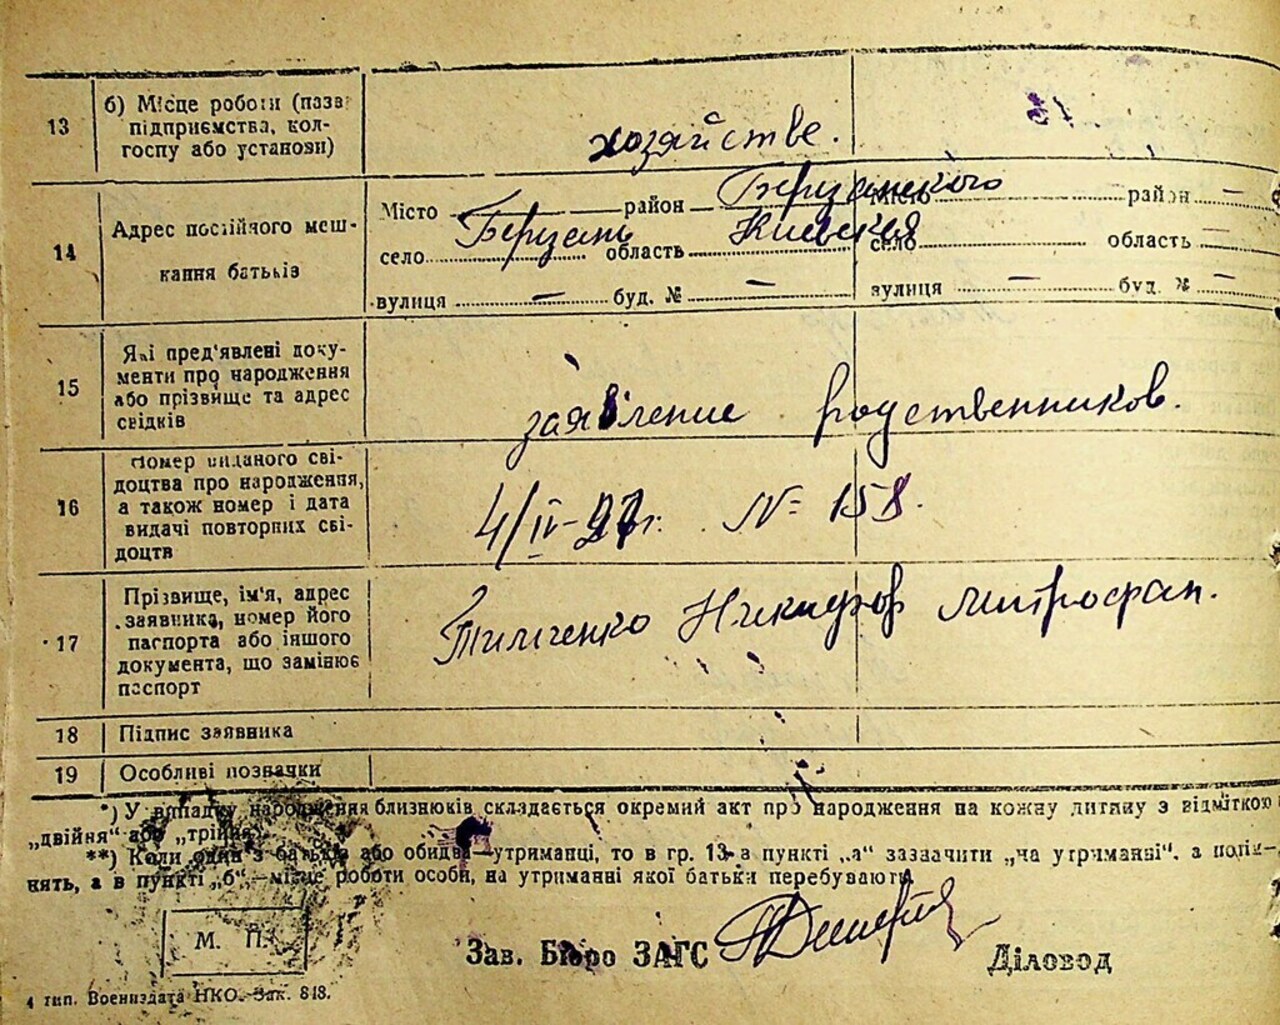 13 б) Місце роботи (назва
підприємства, кол-
госпу або установи)
хозяйстве.
14 Адрес постійного меш-
кання батьків
Місто — район Березанского Місто район —
село Березань область Киевская село область —
вулиця — буд. № — вулиця — буд. № —
15 Які пред'явлені доку-
менти про народження
або прізвище та адрес
свідків
заявление родственников.
16 Номер виданого сві-
доцтва про народження,
а також номер і дата
видачі повторних сві-
доцтв
4/IV- г. № 158.
17 Прізвище, ім'я, адрес
заявника, номер його
паспорта або іншого
документа, що замінює
паспорт
Тимченко Никифор Митрофан.
18 Підпис заявника
19 Особливі позначки
*) У випадку народження близнюків складається окремий акт про народження на кожну дитину з відміткою
„двійня“ або „трійня“.
**) Коли один з батьків або обидва—утриманці, то в гр. 13 в пункті „а“ зазначити „на утриманні“, а
нять, а в пункті „б“—місце роботи особи, на утриманні якої батьки перебувають.
М. П.
Зав. Бюро ЗАГС Діловод
4 тип. Воениздата НКО. Зак. 848.